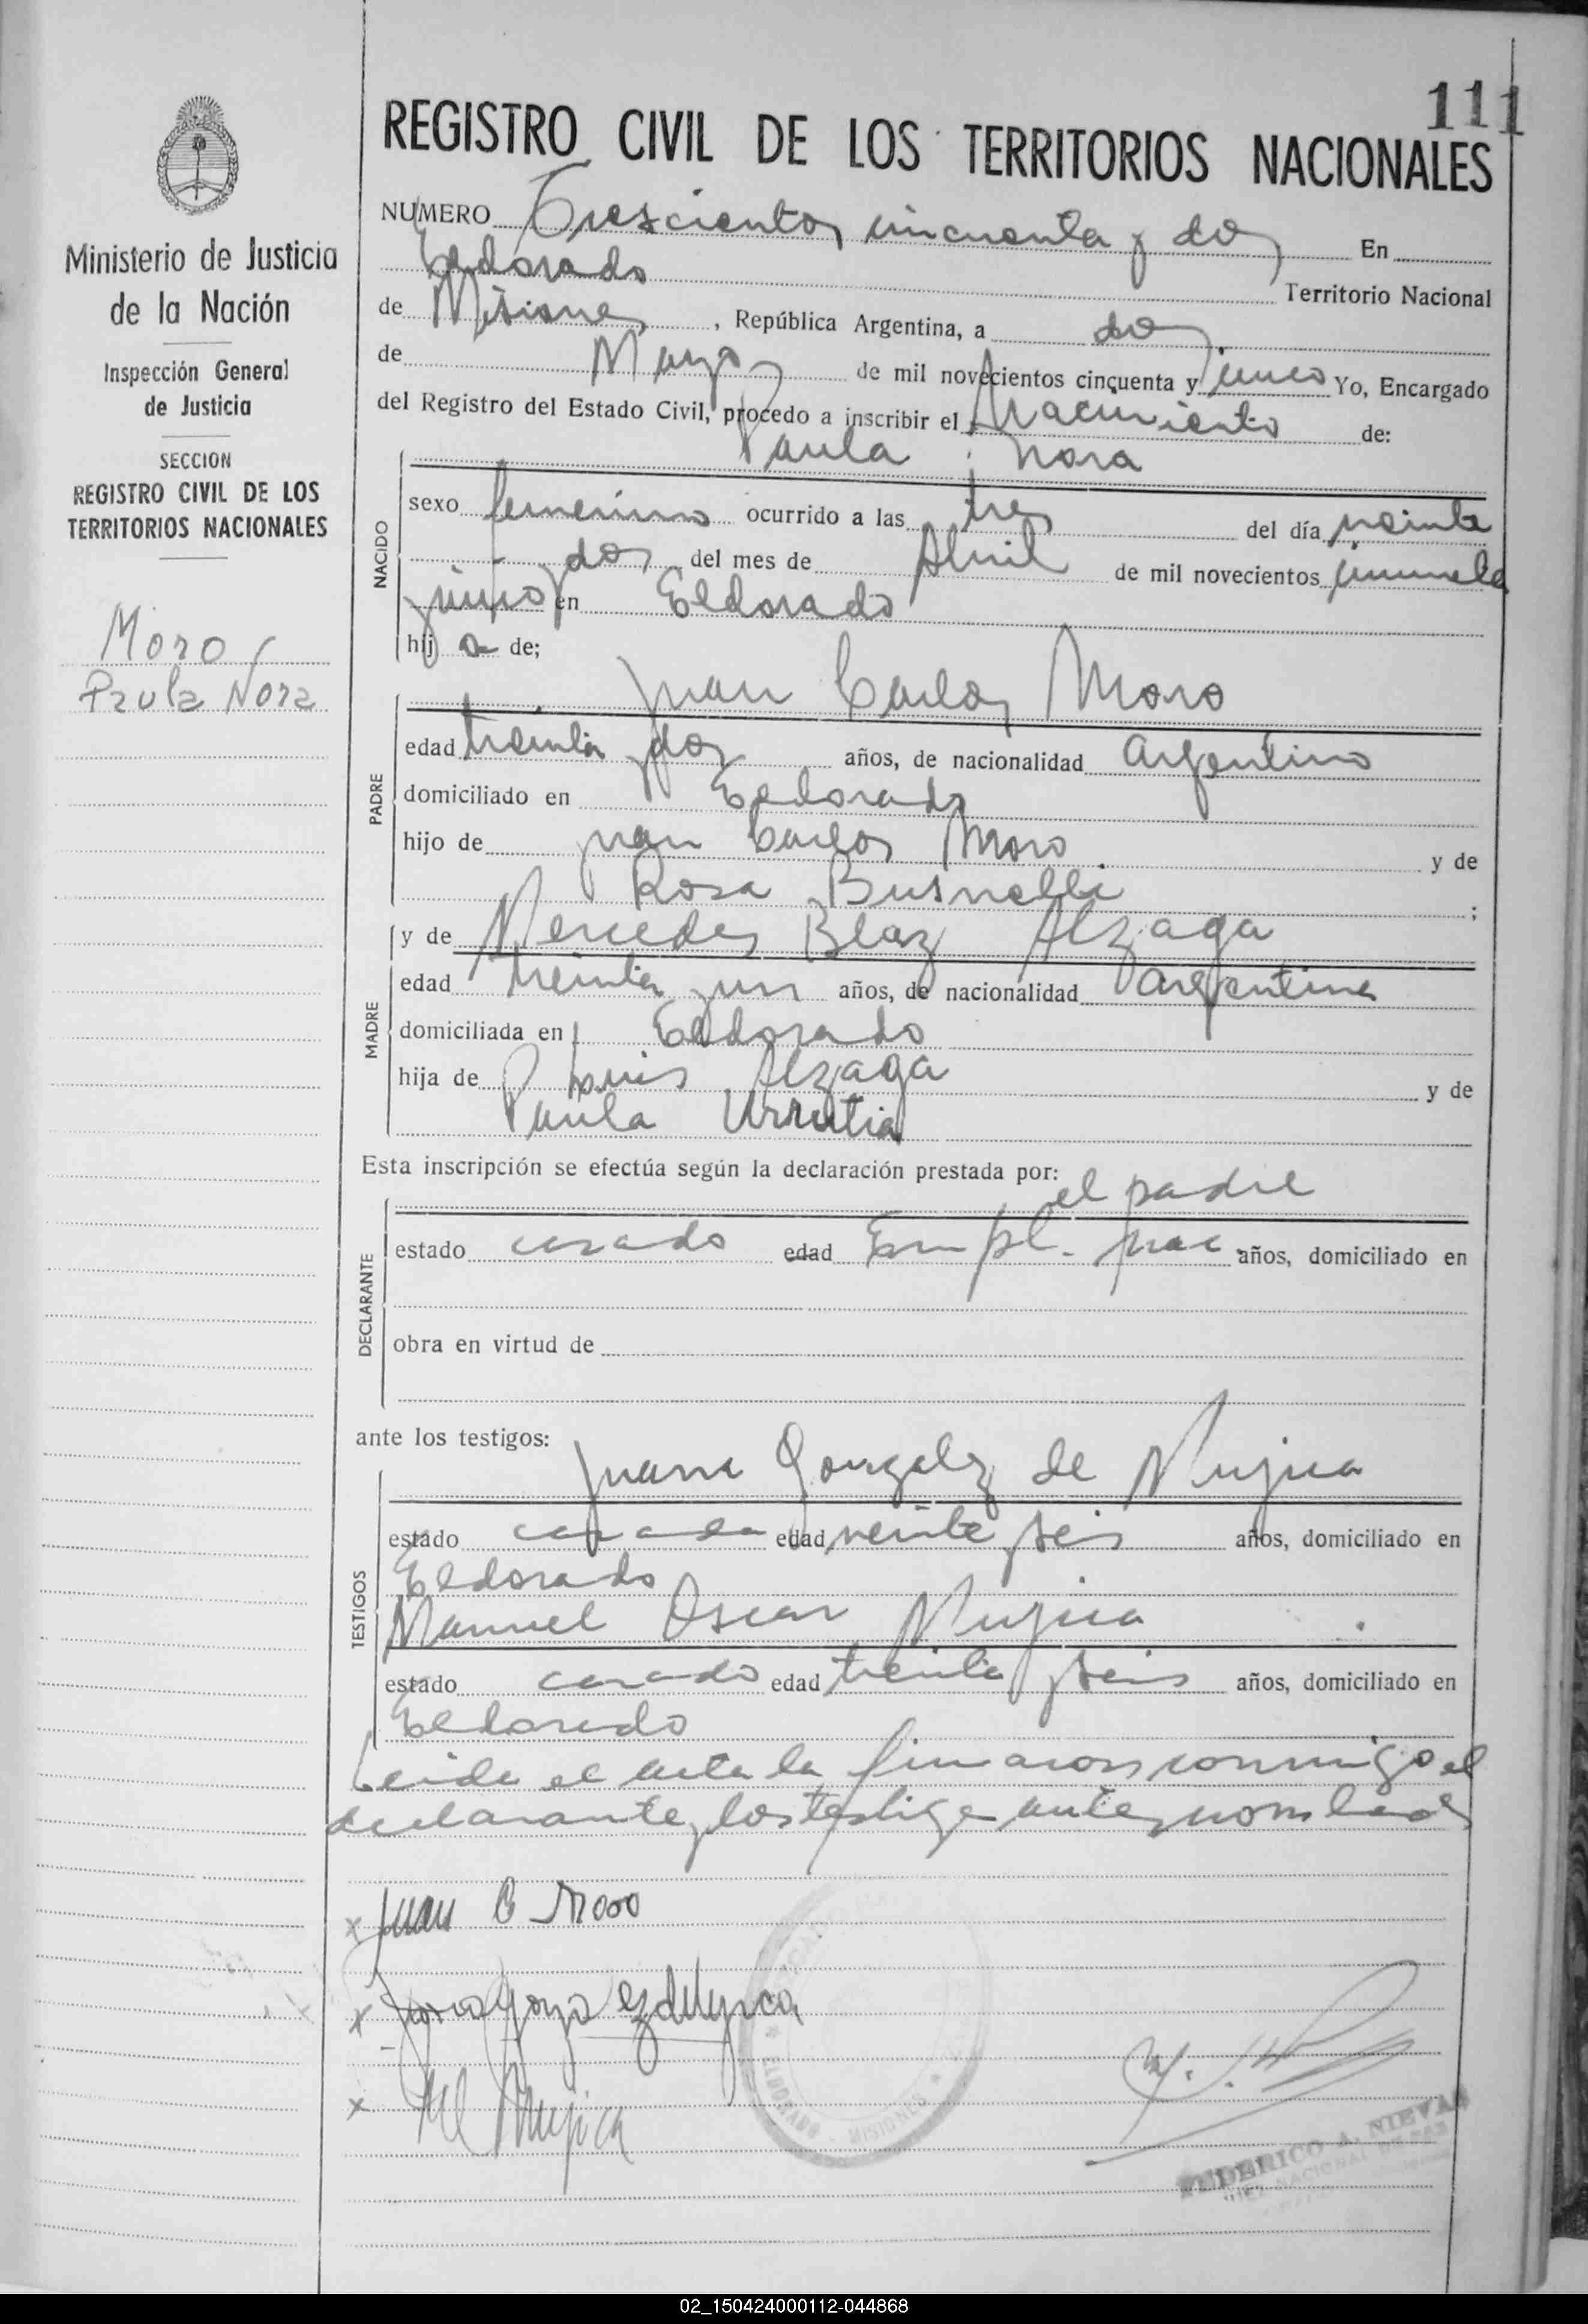 111
REGISTRO CIVIL DE LOS TERRITORIOS NACIONALES
Ministerio de Justicia
de la Nación
Inspección General
de Justicia
SECCION
REGISTRO CIVIL DE LOS
TERRITORIOS NACIONALES
Moro
Paula Nora
NUMERO Trescientos cincuenta y dos En
Eldorado Territorio Nacional
de Misiones, República Argentina, a dos
de Mayo de mil novecientos cincuenta y cinco Yo, Encargado
del Registro del Estado Civil, procedo a inscribir el Nacimiento de:
Paula Nora
NACIDO
sexo femenino ocurrido a las tres del día veinte
y dos del mes de Abril de mil novecientos cincuenta
y cinco en Eldorado
hij a de;
Juan Carlos Moro
PADRE
edad treinta y dos años, de nacionalidad Argentino
domiciliado en Eldorado
hijo de Juan Carlos Moro y de
Rosa Busnelli ;
y de Mercedes Blaz Alzaga
MADRE
edad treinta y un años, de nacionalidad Argentina
domiciliada en Eldorado
hija de Luis Alzaga y de
Paula Urrutia
Esta inscripción se efectúa según la declaración prestada por:
el padre
DECLARANTE
estado casado edad Empl. nac. años, domiciliado en
obra en virtud de
ante los testigos:
Juana Gonzalz de Mujica
TESTIGOS
estado casada edad veinte y seis años, domiciliado en
Eldorado
Manuel Oscar Mujica
estado casado edad treinta y seis años, domiciliado en
Eldorado
Leida el acta la firmaron conmigo el
declarante y los testigos antes nombrados
x Juan C Moro
x
x M Mujica
ELDORADO - MISIONES
FEDERICO A. NIEVAS
NACIONAL DE PAZ
02_150424000112-044868